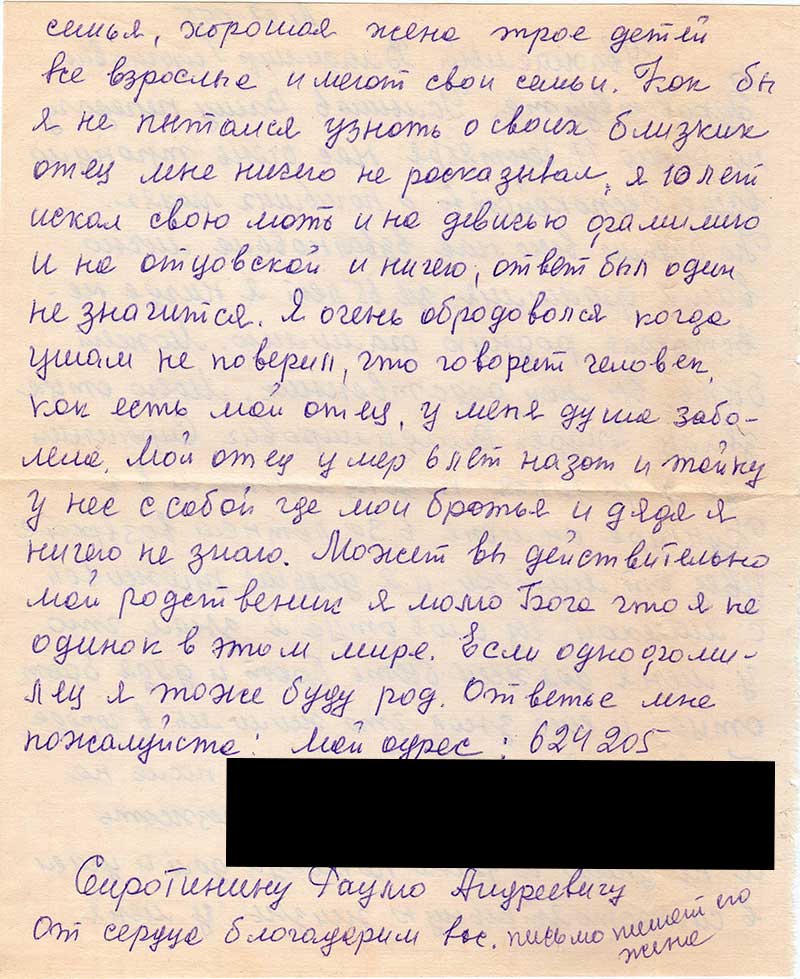 семья, хорошая жена трое детей
все взрослые имеют свои семьи. Как бы
я не пытался узнать о своих близких
отец мне ничего не росказывал, я 10 лет
искал свою мать и на девисью фамилию
и на отцовской и ничего, ответ был один
не значится. Я очень обродовался когда
ушам не поверил, что говорит человек,
как есть мой отец, у меня душа забо-
лела. Мой отец умер 6 лет назот и тойну
унес с собой где мои братья и дядя я
ничего не знаю. Может вы действительно
мой родственик я молю Бога что я не
одинок в этом мире. Если однофоми-
лец я тоже буду род. Ответье мне
пожалуйста! Мой адрес: 624205
Сиротинину Андреевичу
От сердца благодарим вас. письмо пишет его
жена